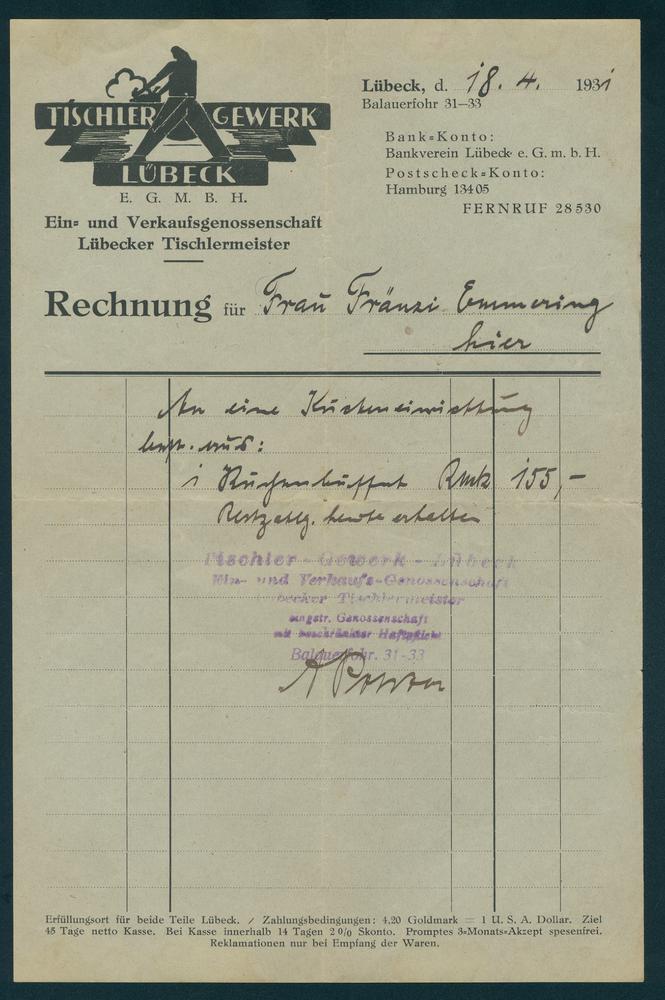 TISCHLER GEWERK
LÜBECK
E. G. M. B. H.
Ein= und Verkaufsgenossenschaft
Lübecker Tischlermeister
Lübeck, d. 18. 4. 1931
Balauerfohr 31–33
Bank=Konto:
Bankverein Lübeck e. G. m. b. H.
Postscheck=Konto:
Hamburg 13405
FERNRUF 28530
Rechnung für Frau Fränzi Emmering
hier
An eine Kücheneinrichtung
best. aus:
1 Küchenbüffet Rmk 155,–
Restzahlg. heute erhalten
Tischler - Gewerk - Lübeck
Ein- und Verkaufs-Genossenschaft
becker Tischlermeister
eingetr. Genossenschaft
mit beschränkter Haftpflicht
Balauerfohr. 31-33
Erfüllungsort für beide Teile Lübeck. / Zahlungsbedingungen: 4,20 Goldmark = 1 U. S. A. Dollar. Ziel
45 Tage netto Kasse. Bei Kasse innerhalb 14 Tagen 2 0/0 Skonto. Promptes 3=Monats=Akzept spesenfrei.
Reklamationen nur bei Empfang der Waren.